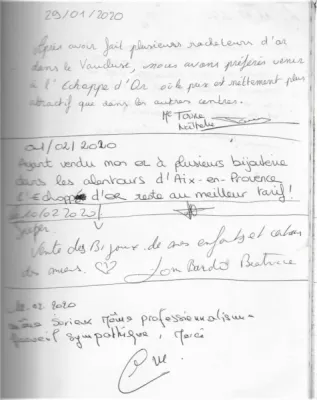 29/01/2020
Après avoir fait plusieurs racheteurs d'or
dans le Vaucluse, nous avons préférés venir
à l'Echoppe d'Or où le prix est nettement plus
attractif que dans les autres centres.
Me
Nathalie
01/02/2020
Ayant vendu mon or à plusieurs bijouterie
dans les alentours d'Aix-en-Provence
L'Echoppe d'OR reste au meilleur tarif!
le 10/02 2020
Super
Vente des Bijoux de mes enfants et
des miens. ♡ Beatrice
02.2020
Sérieux professionalisme
accueil sympathique, Merci